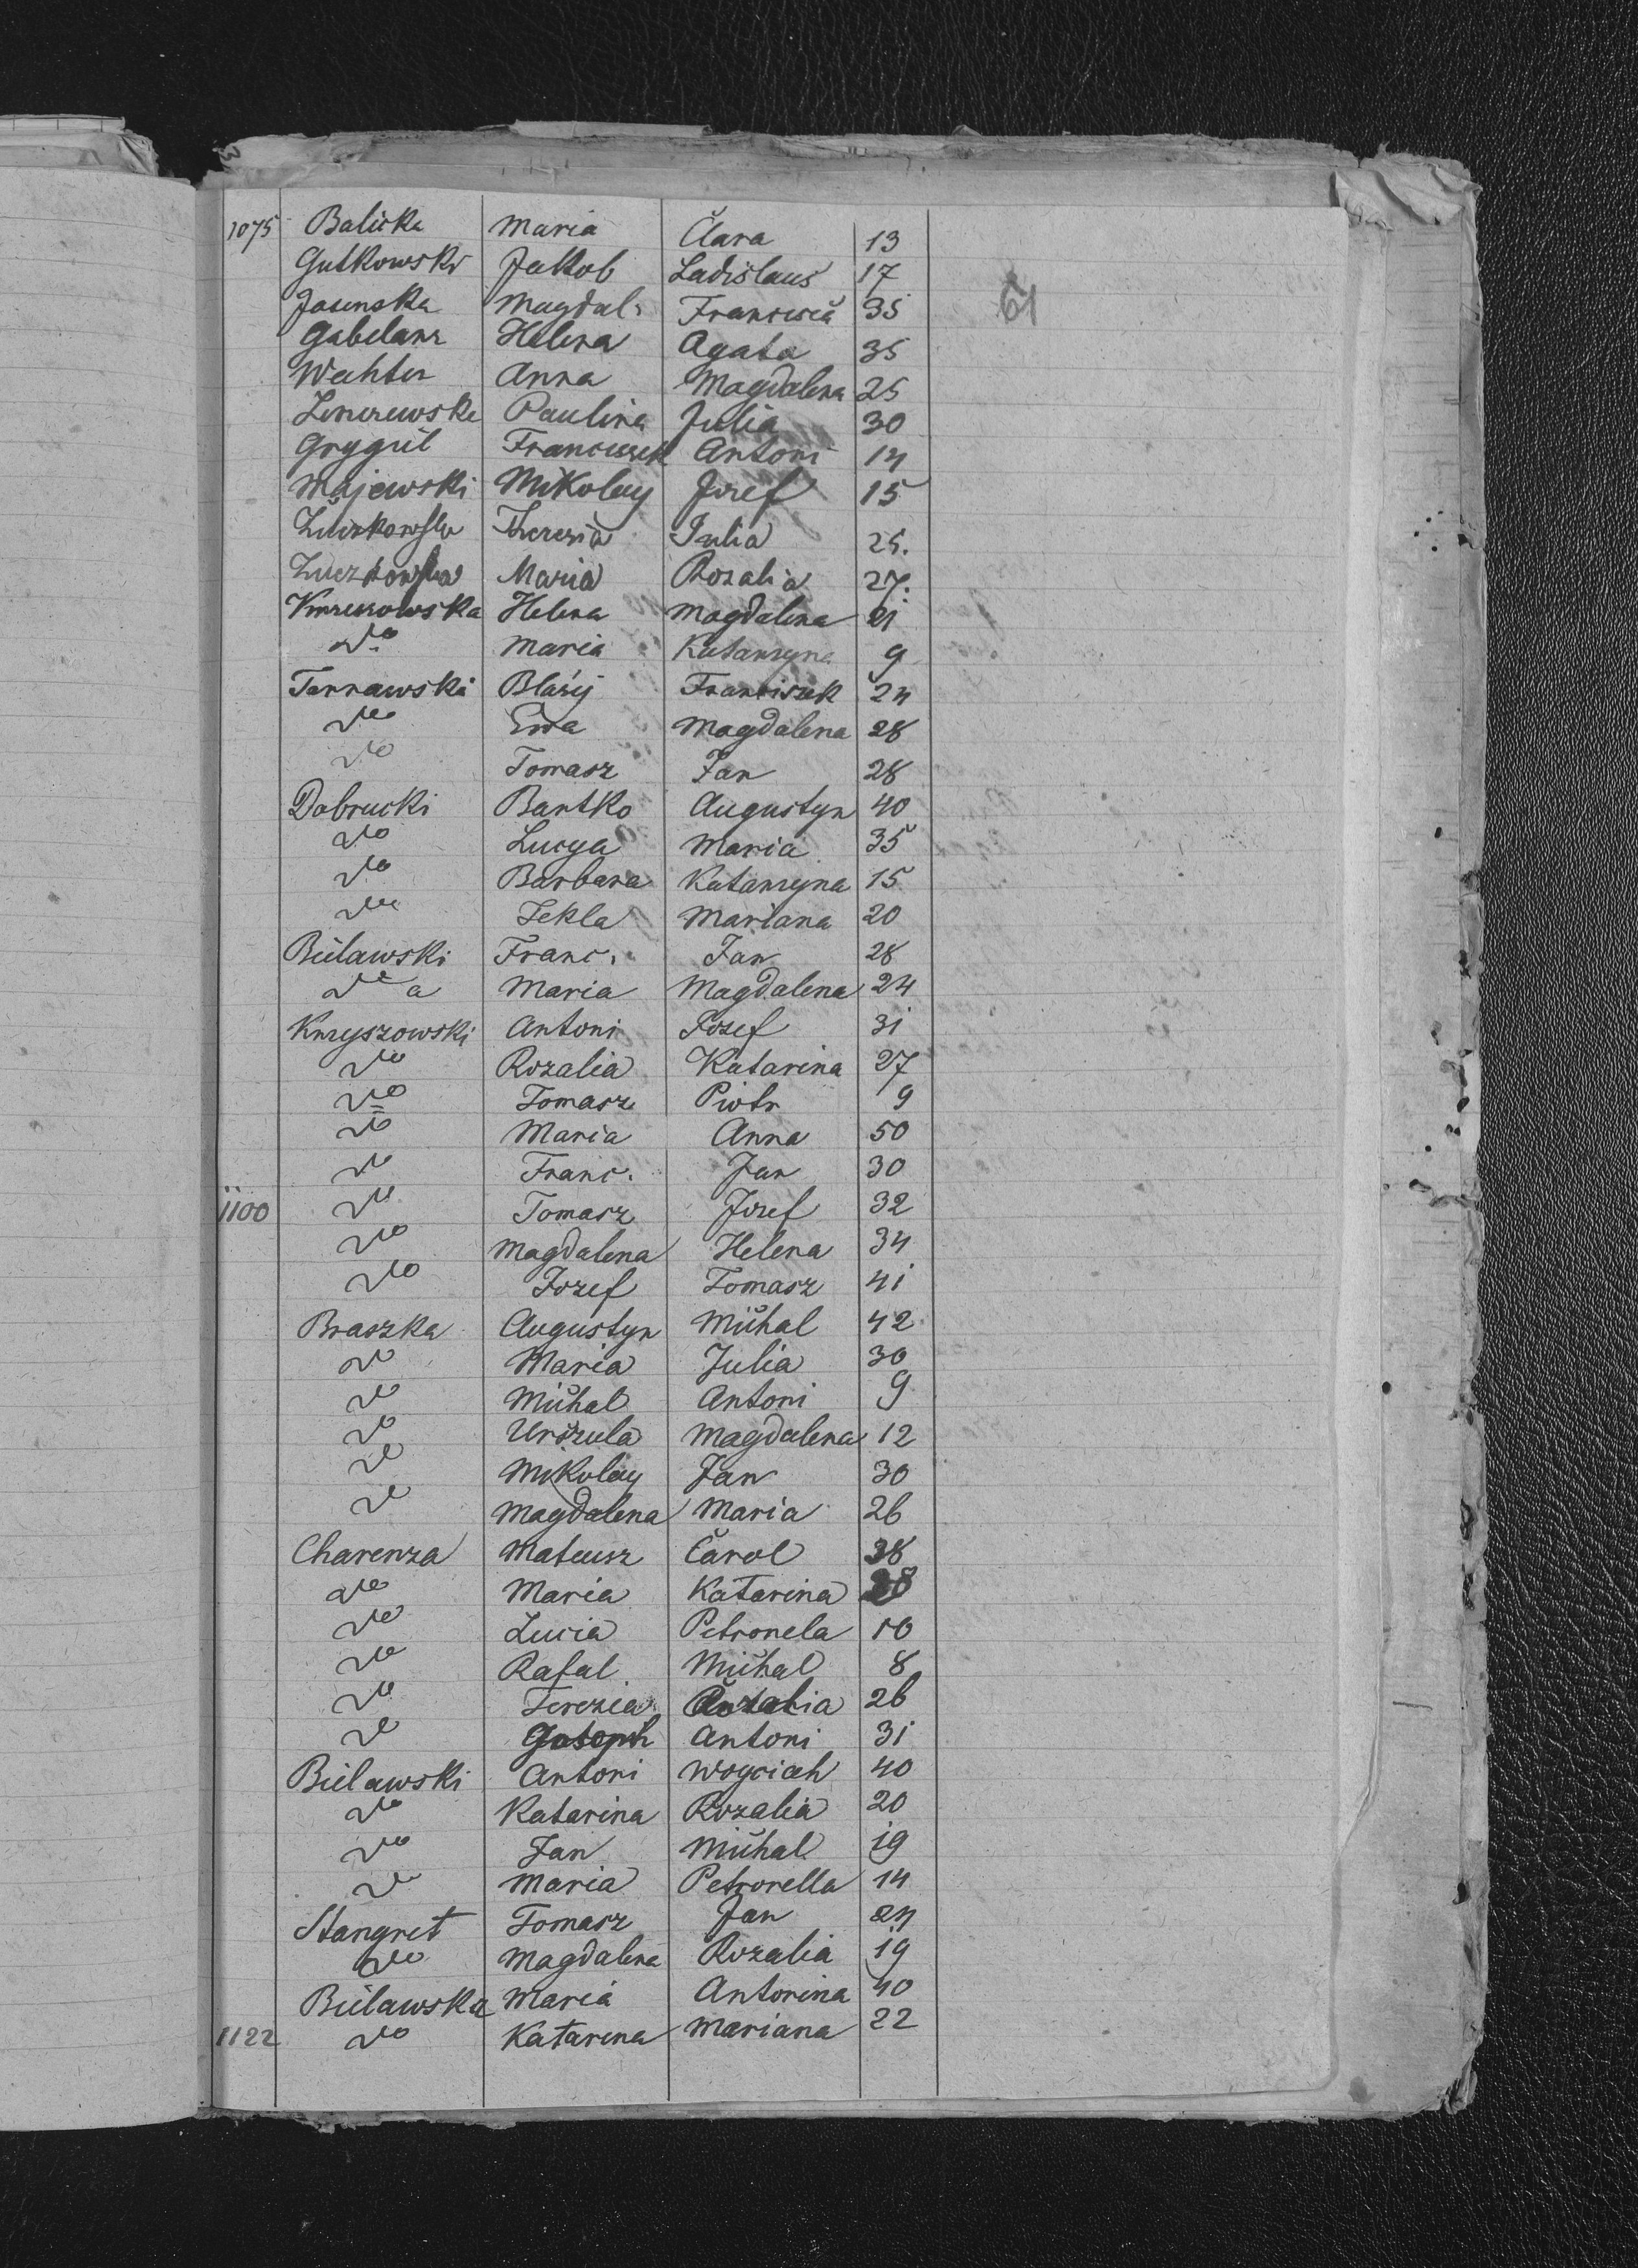 1075 Balicka Maria Clara 13
Gutkowski Jakob Ladislaus 17
61
Jasenska Magdal. 35
Gabelanz Helena Agata 35
Wechter Anna Magdalena 25
Paulina Julia 30
Grygiel Franciszek Antoni 14
Majewski Mikolay Jozef 15
Theresia Julia 25.
Maria Rozalia 27.
Helena Magdalena 21
do Maria Katarzyna 9
Tarnawski Błażij Franciszek 24
do Ewa Magdalena 28
do Tomasz Jan 28
Dobrucki Bartko Augustyn 40
do Lucya Maria 35
do Barbara Katarzyna 15
do Tekla Mariana 20
Bielawski Franc. Jan 28
do a Maria Magdalena 24
Knryszowski Antoni Josef 31
do Rozalia Katarina 27
do Tomasz Piotr 9
do Maria Anna 50
do Franc. Jan 30
1100 do Tomasz Jozef 32
do Magdalena Helena 34
do Jozef Tomasz 41
Braszka Augustyn Michal 42
do Maria Julia 30
do Michal Antoni 9
do Urszula Magdalena 12
do Mikolay Jan 30
do Magdalena Maria 26
Charenza Mateusz Carol 38
do Maria Katarina
do Lucia Petronela 10
do Rafal Michal 8
do Terezia 26
do Antoni 31
Bielawski Antoni Woyciech 40
do Katarina Rozalia 20
do Jan Michal 19
do Maria Petronella 14
Stangret Tomasz Jan 24
do Magdalena Rozalia 19
Bielawska Maria Antonina 40
1122 do Katarina Mariana 22